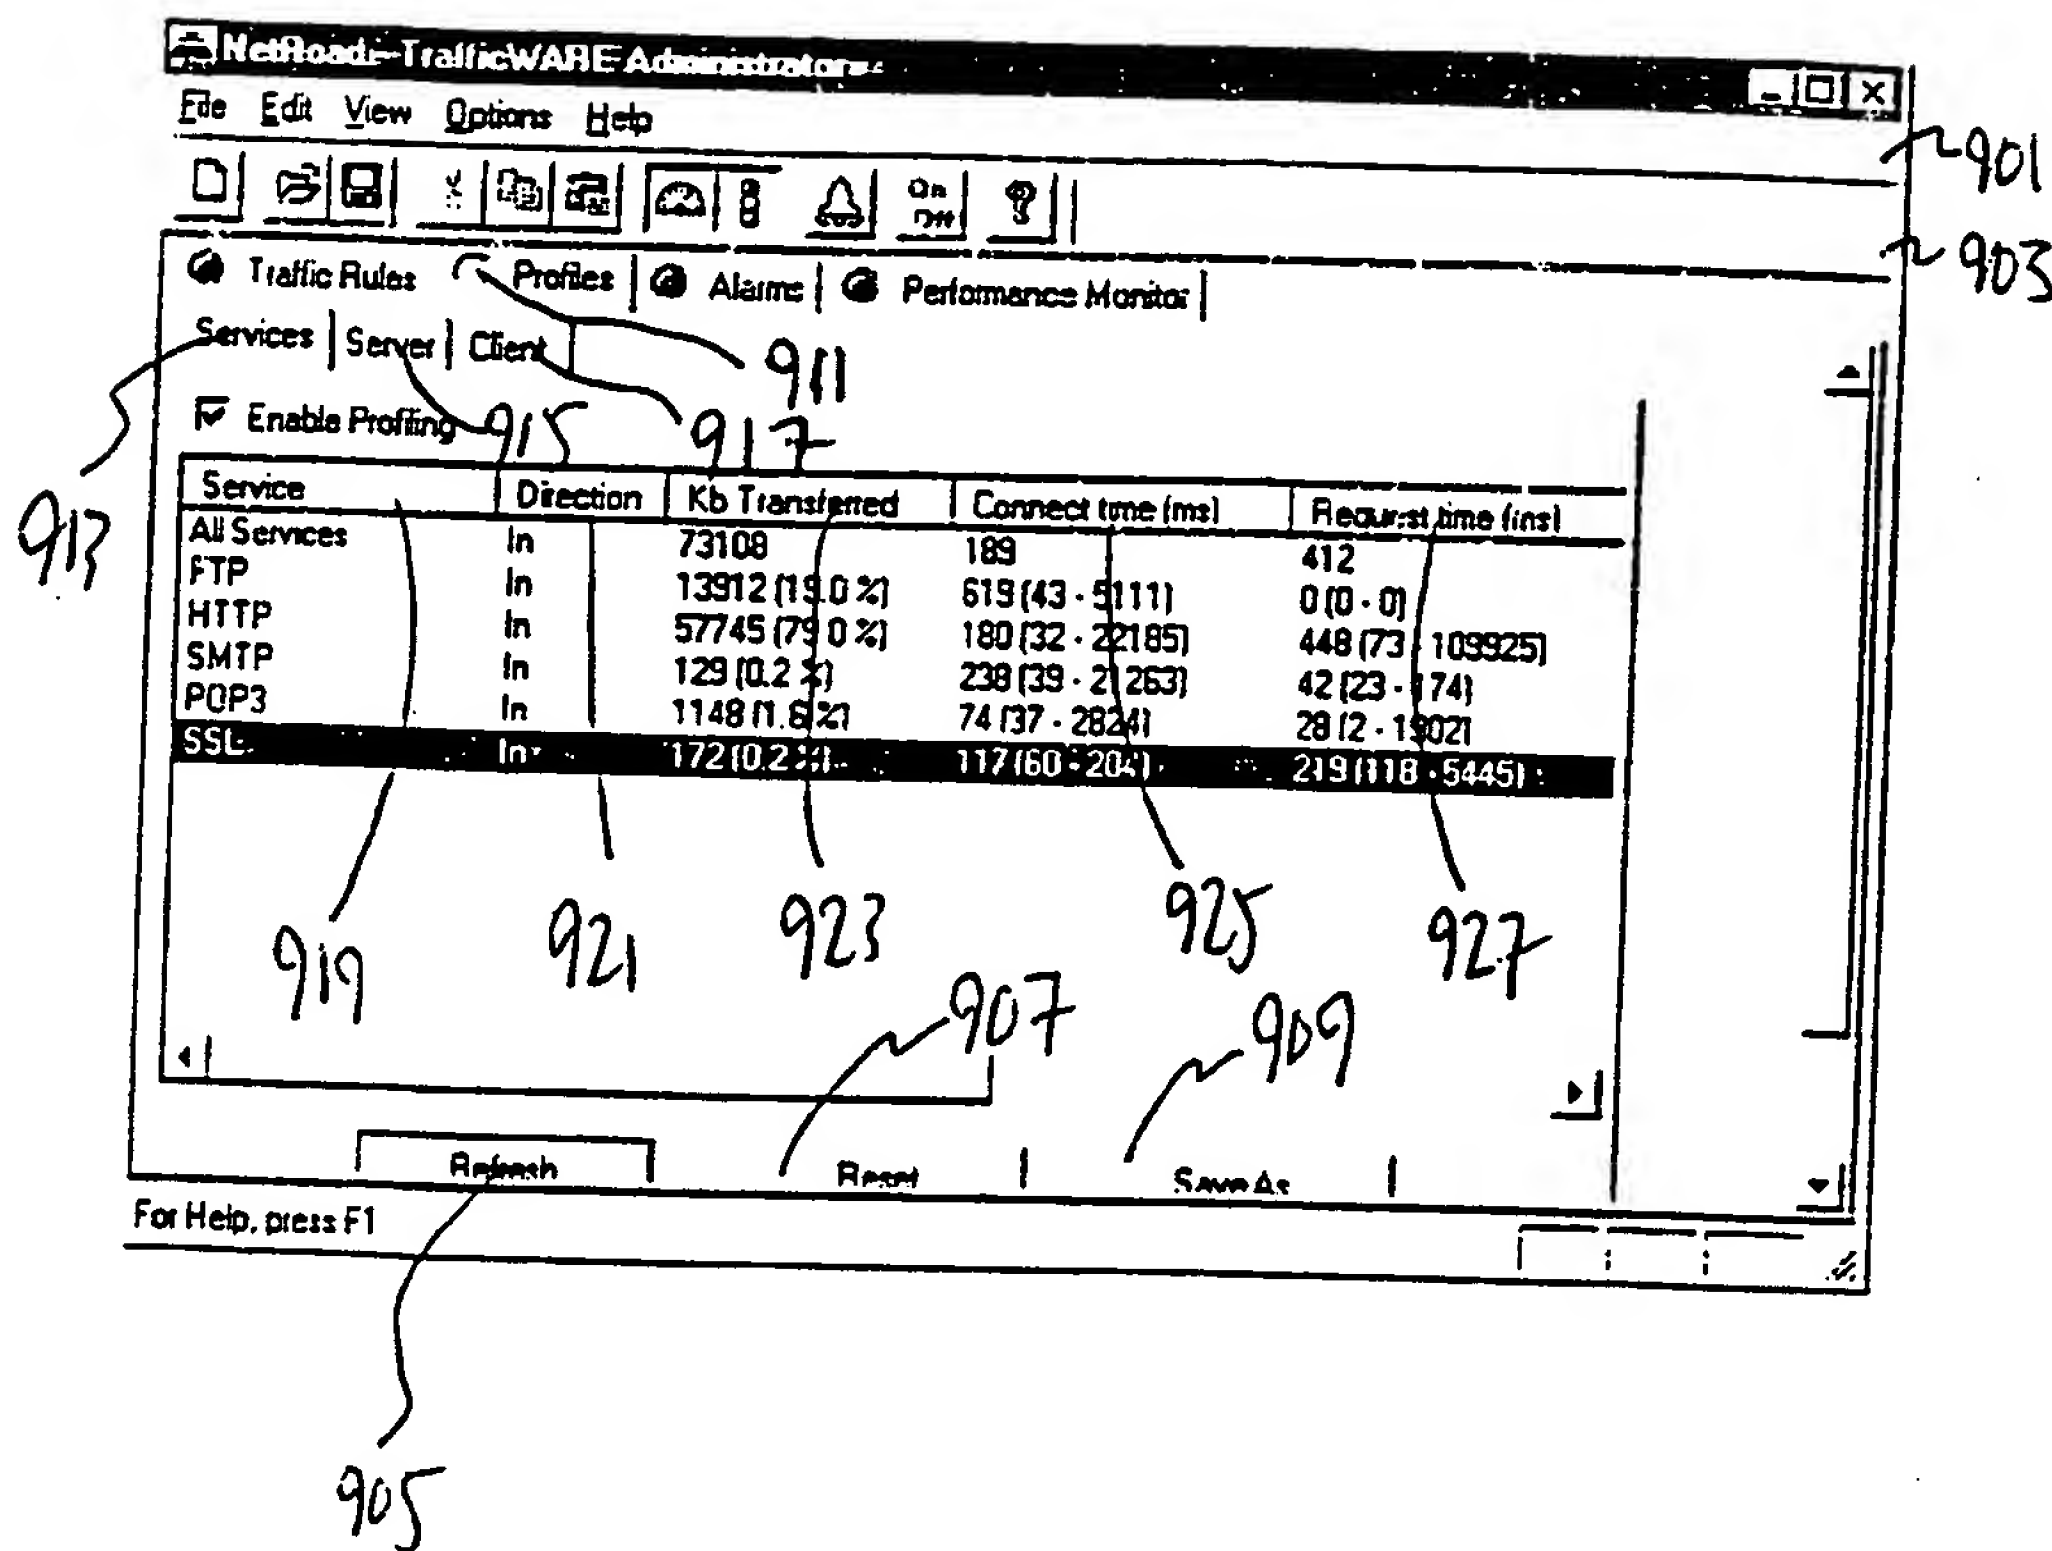 NetRoad - TrafficWARE Administrator
File Edit View Options Help
On
Off
901
903
Traffic Rules Profiles Alarms Performance Monitor
Services Server Client
911
Enable Profiling
915 917
913
Service Direction Kb Transferred Connect time (ms) Request time (ms)
All Services In 73108 189 412
FTP In 13912 (19.0 %) 619 (43 - 5111) 0 (0 - 0)
HTTP In 57745 (79.0 %) 180 (32 - 22185) 448 (73 - 109925)
SMTP In 129 (0.2 %) 238 (39 - 21263) 42 (23 - 174)
POP3 In 1148 (1.6 %) 74 (37 - 2824) 28 (2 - 1902)
SSL In 172 (0.2 %) 117 (60 - 204) 219 (118 - 5445)
919 921 923 925 927
907 909
Refresh Reset Save As
For Help, press F1
905